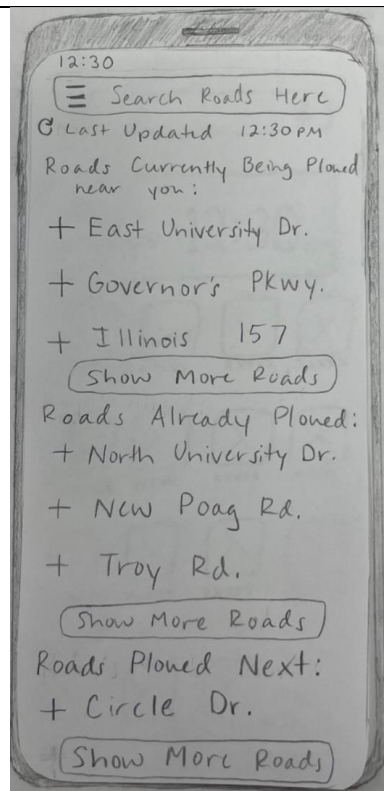 12:30
Search Roads Here
Last Updated 12:30 PM
Roads Currently Being Plowed
near you:
+ East University Dr.
+ Governor's Pkwy.
+ Illinois 157
Show More Roads
Roads Already Plowed:
+ North University Dr.
+ New Poag Rd.
+ Troy Rd.
Show More Roads
Roads Plowed Next:
+ Circle Dr.
Show More Roads